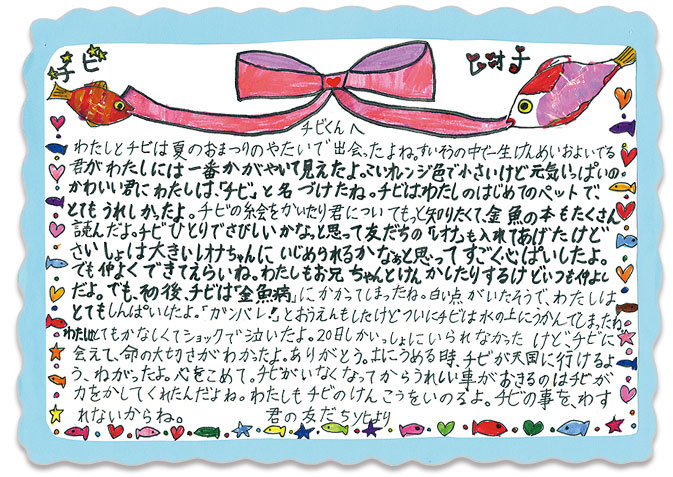 チビ
レオナ
チビくんへ
わたしとチビは夏のおまつりのやたいで出会ったよね。すいそうの中で一生けんめいおよいでる
君がわたしには一番かがやいて見えたよ。こいオレンジ色で小さいけど元気いっぱいの
かわいい君にわたしは、「チビ」と名づけたね。チビはわたしのはじめてのペットで、
とてもうれしかったよ。チビの絵をかいたり君についてもっと知りたくて、金魚の本もたくさん
読んだよ。チビひとりでさびしいかな。と思って友だちの「レオナ」も入れてあげたけど
さいしょは大きいレオナちゃんにいじめられるかなぁと思ってすごく心ぱいしたよ。
でも仲よくできてえらいね。わたしもお兄ちゃんとけんかしたりするけどいつも仲よし
だよ。でも、その後、チビは「金魚病」にかかってしまったね。白い点がいたそうで、わたしは
とてもしんぱいしたよ。「ガンバレ!」とおうえんもしたけどついにチビは水の上にうかんでしまったね
わたしはとてもかなしくてショックで泣いたよ。20日しかいっしょにいられなかったけどチビに
会えて、命の大切さがわかったよ。ありがとう。土にうめる時、チビが天国に行けるよ
う、ねがったよ。心をこめて。チビがいなくなってからうれしい事がおきるのはチビが
力をかしてくれたんだよね。わたしもチビのけんこうをいのるよ。チビの事を、わす
れないからね。 君の友だち より